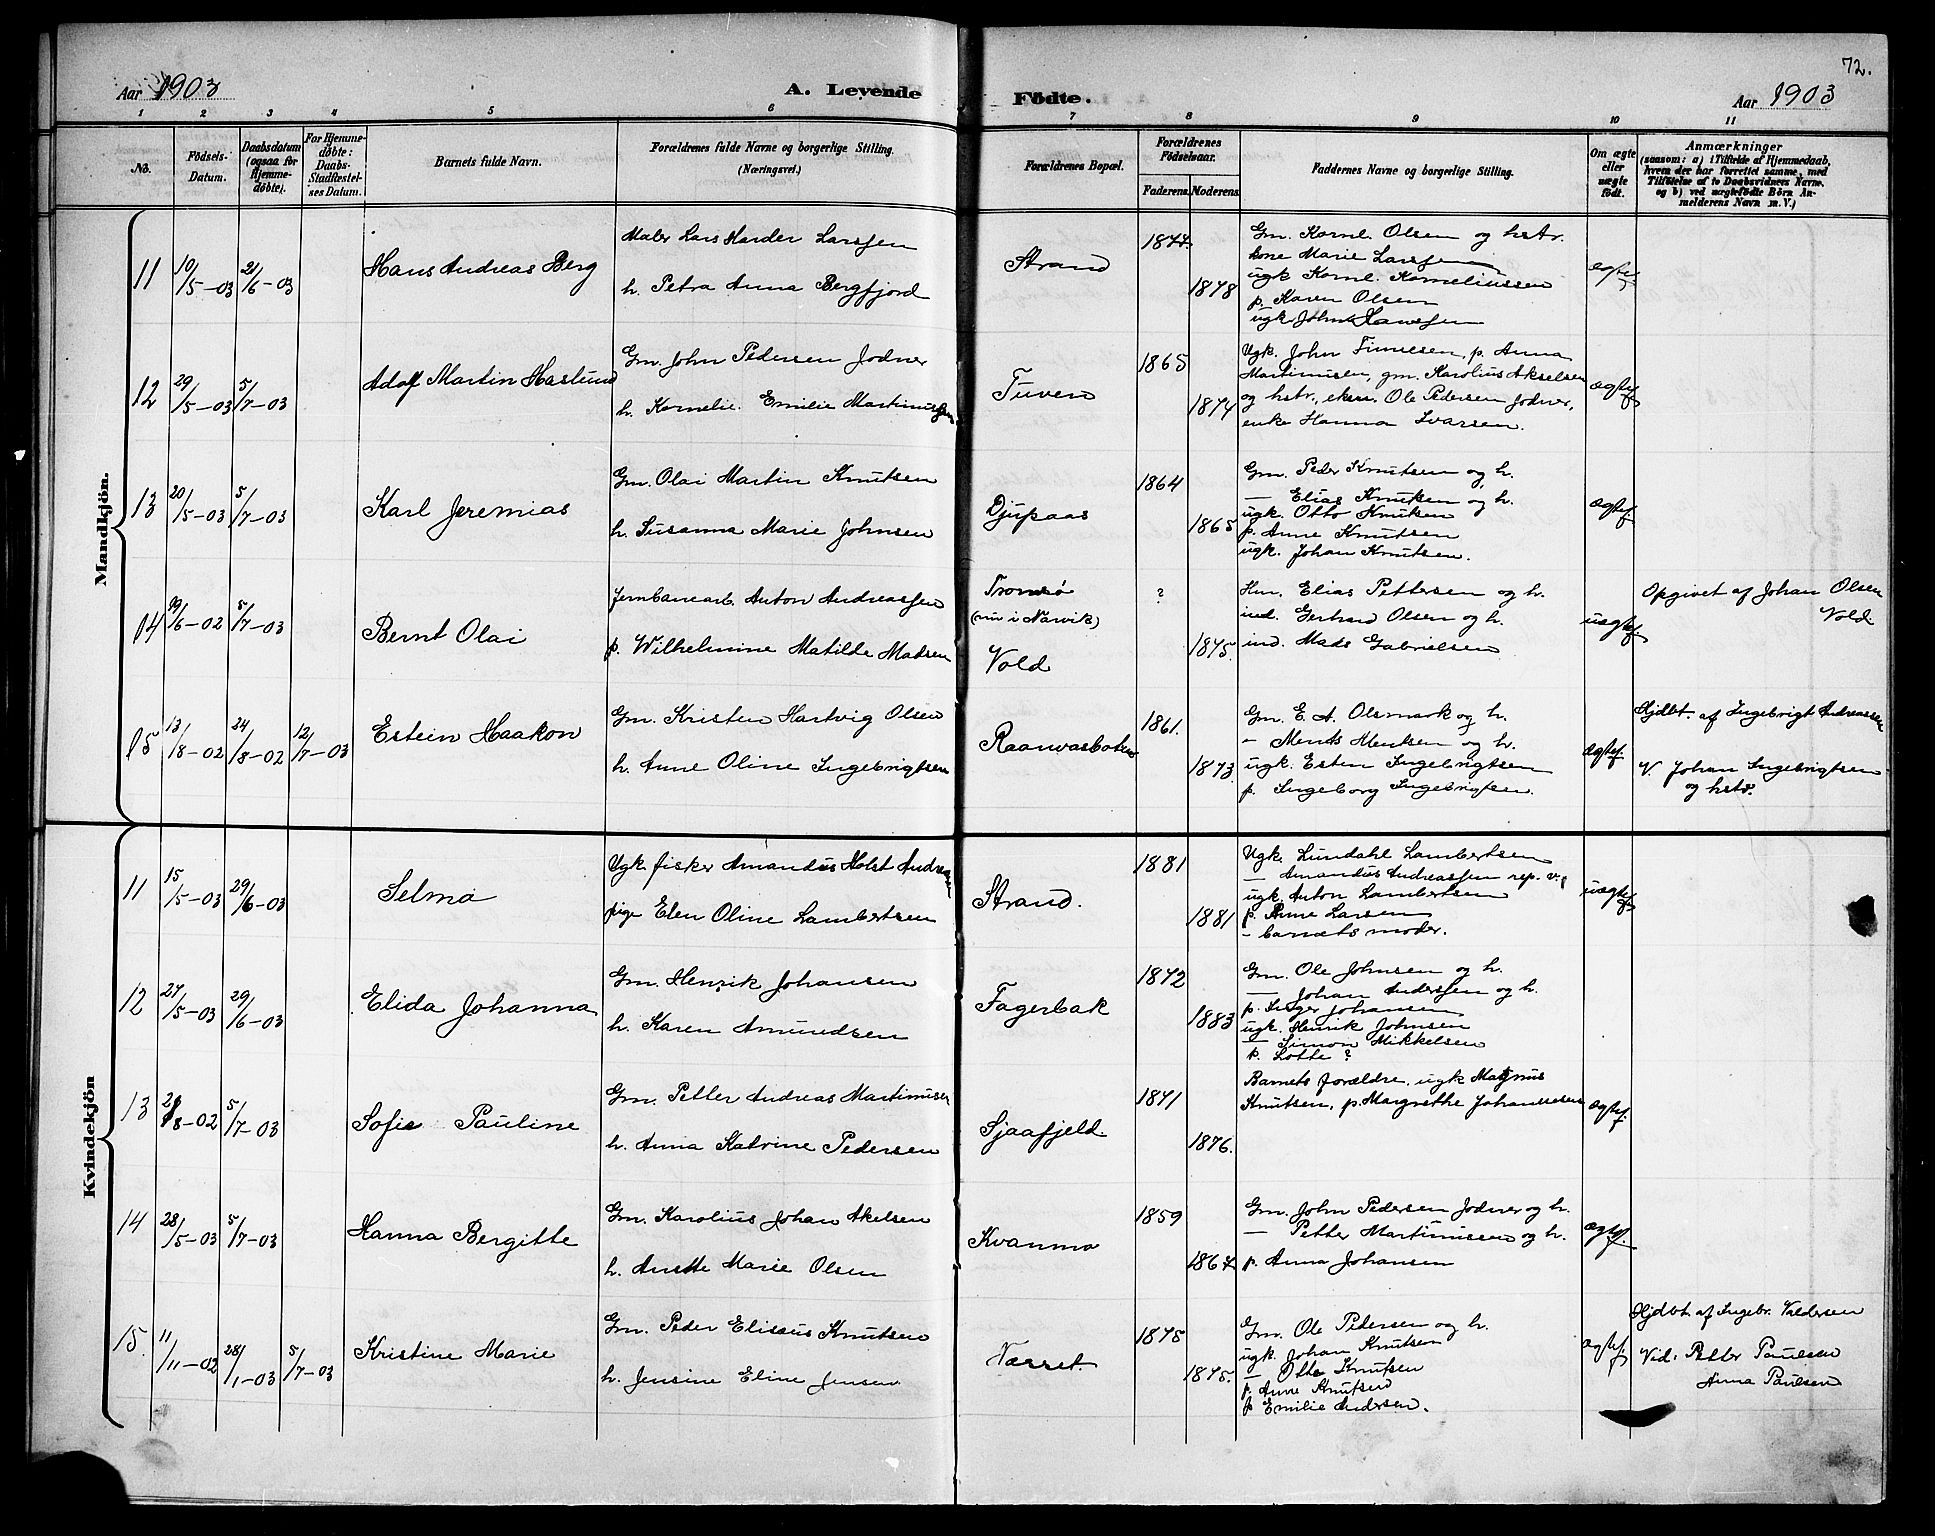 72.
Aar 1903 A. Levende Födte. Aar 1903
1 2 3 4 5 6 7 8 9 10 11
No.
Födsels-Datum.
Daabsdatum (ogsaa for Hjemme-döbte).
For Hjemme-döbte: Daabs-Stadfæstel-ses Datum.
Barnets fulde Navn.
Forældrenes fulde Navne og borgerlige Stilling.
(Næringsvei.)
Forældrenes Bopæl.
Forældrenes Födselsaar.
Faderens. Moderens.
Faddernes Navne og borgerlige Stilling.
Om ægte eller uægte födt.
Anmærkninger
(saasom: a) i Tilfælde af Hjemmedaab,
hvem der har forrettet samme, med
Tilföielse af to Daabsvidners Navne,
og b) ved uægtefödte Börn An-
melderens Navn m. V.)
Mandkjön.
11 10/5-03 21/6-03 Hans Andreas Berg
Maler Lars Harder Larssen
h. Petra Anna Bergfjord
Strand
1877.
1878
Gm. Kornl. Olsen og hstr.
kone Marie Larssen
ugk Kornl. Korneliussen
p. Karen Olsen
ugk John Hanssen
ægtef
12 29/5-03 5/7-03 Adolf Martin Haslund
Gm. John Pedersen Jodner
h. Kornelie Emilie Martinussen
Tuven
1865
1874
Ugk. John Finnesen, p. Anna
Martinusen, gm. Karolius Akselsen
og hstr., eksm. Ole Pedersen Jodner,
enke Hanna Ivarsen.
ægtef
13 20/5-03 5/7-03 Karl Jeremias
Gm. Olai Martin Knutsen
h. Susanna Marie Johnsen
Djupaas
1864
1865
Gm. Peder Knutsen og h.
— Elias Knutsen og h.
ugk. Otto Knutsen
p. Anne Knutsen
ugk. Johan Knutsen.
ægtef
14 19/6-02 5/7-03 Bernt Olai
Jernbanearb. Anton Andreassen
p. Wilhelmine Matilde Madsen
Tromsø
(nu i Narvik)
Vold
?
1875.
Hm. Elias Pettersen og h.
ind. Gerhard Olsen og h.
ind. Mads Gabrielsen
uægtef
Opgivet af Johan Olsen
Vold.
15 13/8-02 24/8-02 12/7-03 Estein Haakon
Gm. Kristen Hartvig Olsen
h. Anne Oline Ingebrigtsen
Raanvasbotn
1861.
1873
Gm. E. A. Olsmark og h.
- Ments Mentsen og h.
ugk. Esten Ingebrigtsen
p. Ingeborg Ingebrigtsen.
ægtef.
Hjdbt. af Ingebrigt Andreassen
V. Johan Ingebrigtsen
og hstr.
Kvindekjön
11 15/5-03 29/6-03 Selma
Ugk. fisker Amandus Holst Andreassen
pige Elen Oline Lambertsen
Strand.
1881
1881
Ugk. Lundahl Lambertsen
— Amandus Andreassen rep. v.
ugk. Anton Lambertsen
p. Anne Larsen
- barnets moder.
uægtef
12 27/5-03 29/6-03 Elida Johanna
Gm. Henrik Johansen
h. Karen Amundsen
Fagerbak
1872
1883
Gm. Ole Johnsen og h.
— Johan Anderssen og h.
p. Inger Johansen
ugk. Henrik Johnsen
— Simon Mikkelsen
p. Lotte ?
13 /8-02 5/7-03 Sofie Pauline
Gm. Petter Andreas Martinusen
h. Anna Katrine Pedersen
Sjaafjeld.
1871
1876.
Barnets forældre, ugk Magnus
Knutsen, p. Margrethe Johannesen
ægtef.
14 28/5-03 5/7-03 Hanna Bergitte
Gm. Karolius Johan Akelsen
h. Anette Marie Olsen
Kvanmo
1859
1867.
Gm. John Pedersen Jodner og h.
— Petter Martinussen og h.
p. Anna Johansen
ægtef.
15. 11/11-02 28/1-03 5/7-03 Kristine Marie
Gm. Peder Eliseus Knutsen
h. Jensine Eline Jensen
Næsset
1875
1875.
Gm. Ole Pedersen og h.
ugk. Johan Knutsen
— Otto Knutsen
p. Anne Knutsen
p Emilie Andersen.
ægtef.
Hjdbt af Ingebr. Valdersen
Vid: Petter Paulsen
Anna Paulsen